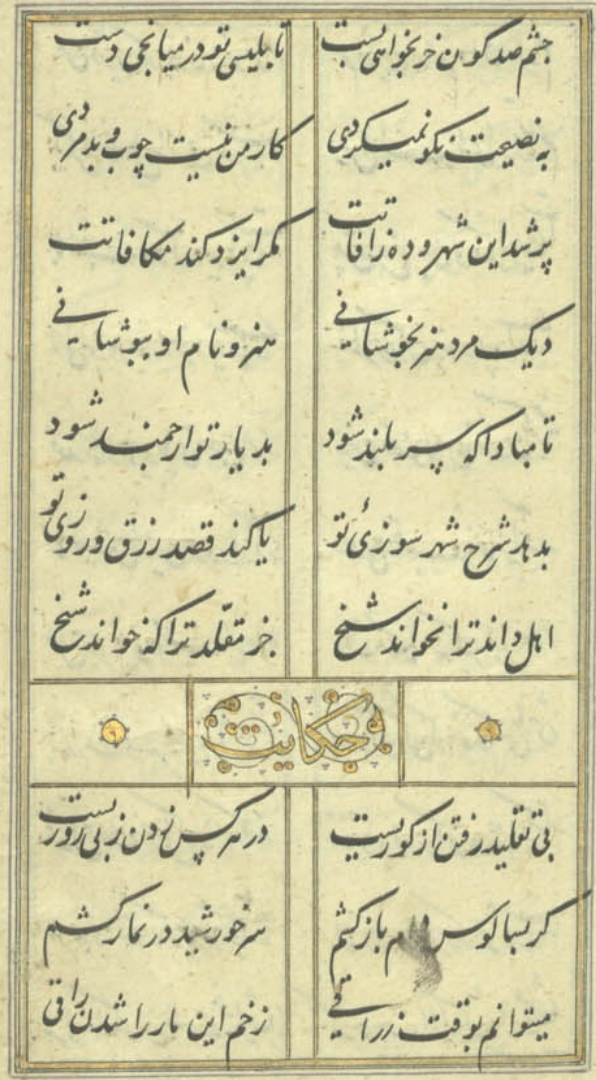 چشم صد کون خر بخواهی بست تا بلیسی تو در میانجی دست
به نصیحت نکو نمیکردی کار من نیست چوب و بد مردی
پر شد این شهر و ده زافاتت مکر ایزد کند مکافاتت
دیک مرد هنر بخوشانی هنر و نام او بپوشانی
تا مبادا که سر بلند شود بدیار تو ارجمند شود
بدهد شرح شهر سوزئ تو یا کند قصد رزق و روزئ تو
اهل داند ترا نخواند شیخ جز مقلد ترا که خواند شیخ
حکایت
پی تقلید رفتن از کوریست در هر کس زدن ز بی زوریست
کر بسالوس بازکشم سر خورشید در نمار کشم
میتوانم بوقت زراقی زخم این مار را شدن راقی